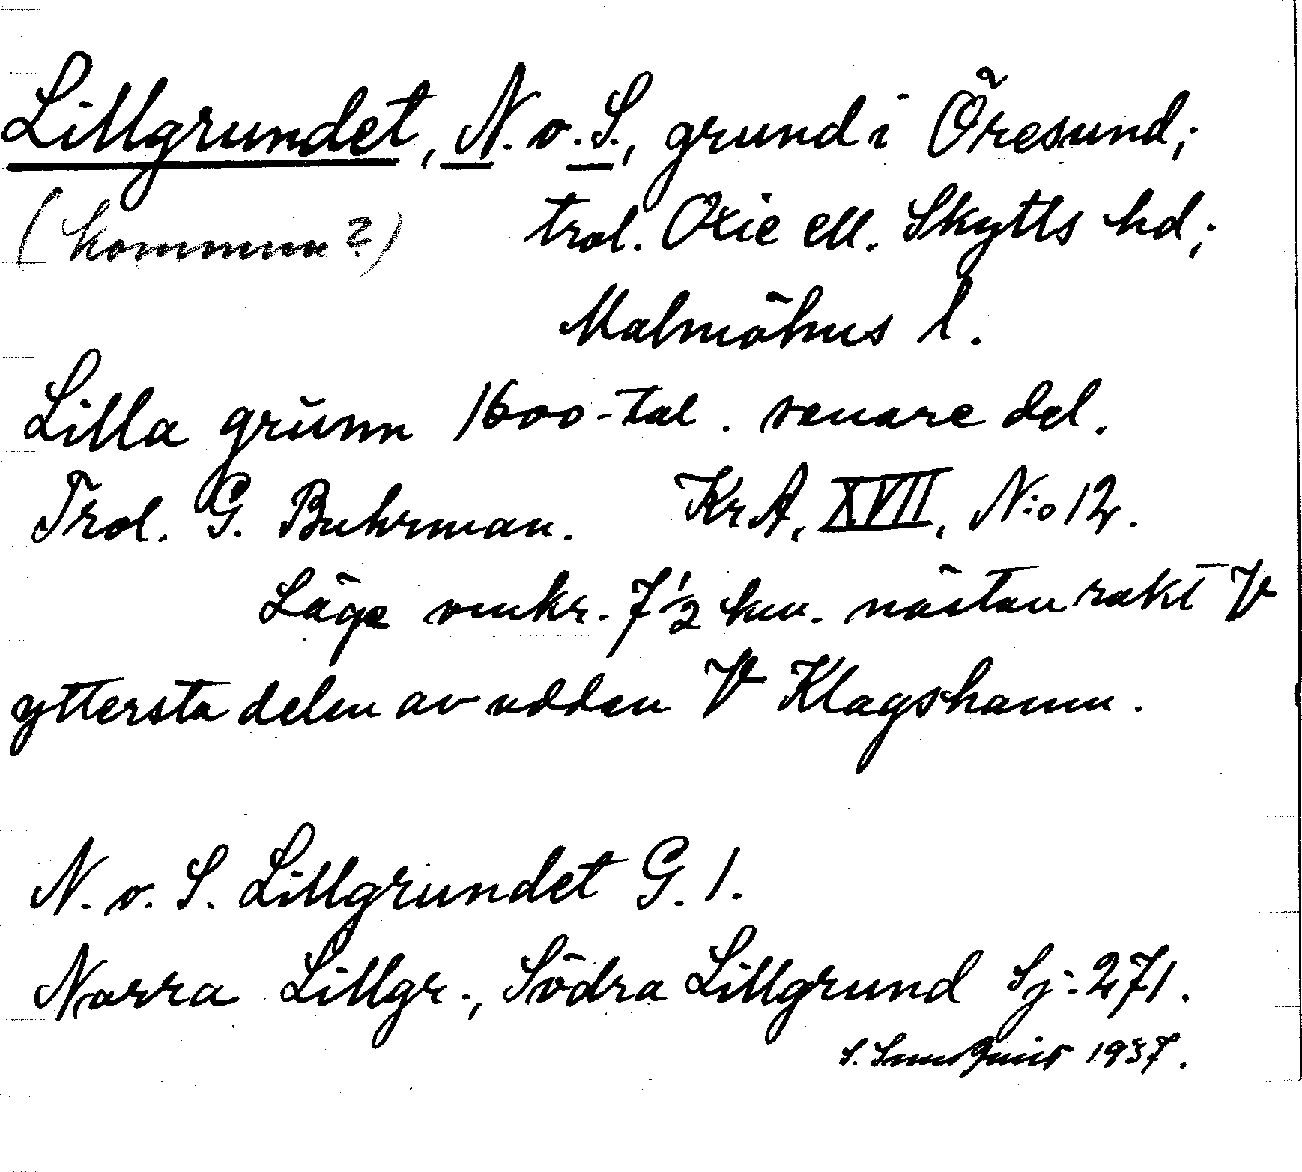 Lillgrundet, N. o. S., grund i Öresund;
(kommun?) trol. Oxie ell. Skytts hd;
Malmöhus l.
Lilla grŭnn 1600-tal. senare del.
Trol. G. Buhrman. KrA, XVII, N:o 12.
Läge omkr. 7 1/2 km. nästan rakt V
yttersta delen av udden V Klagshamn.
N. o. S. Lillgrundet G. 1.
Norra Lillgr., Södra Lillgrund Sj: 271.
1937.